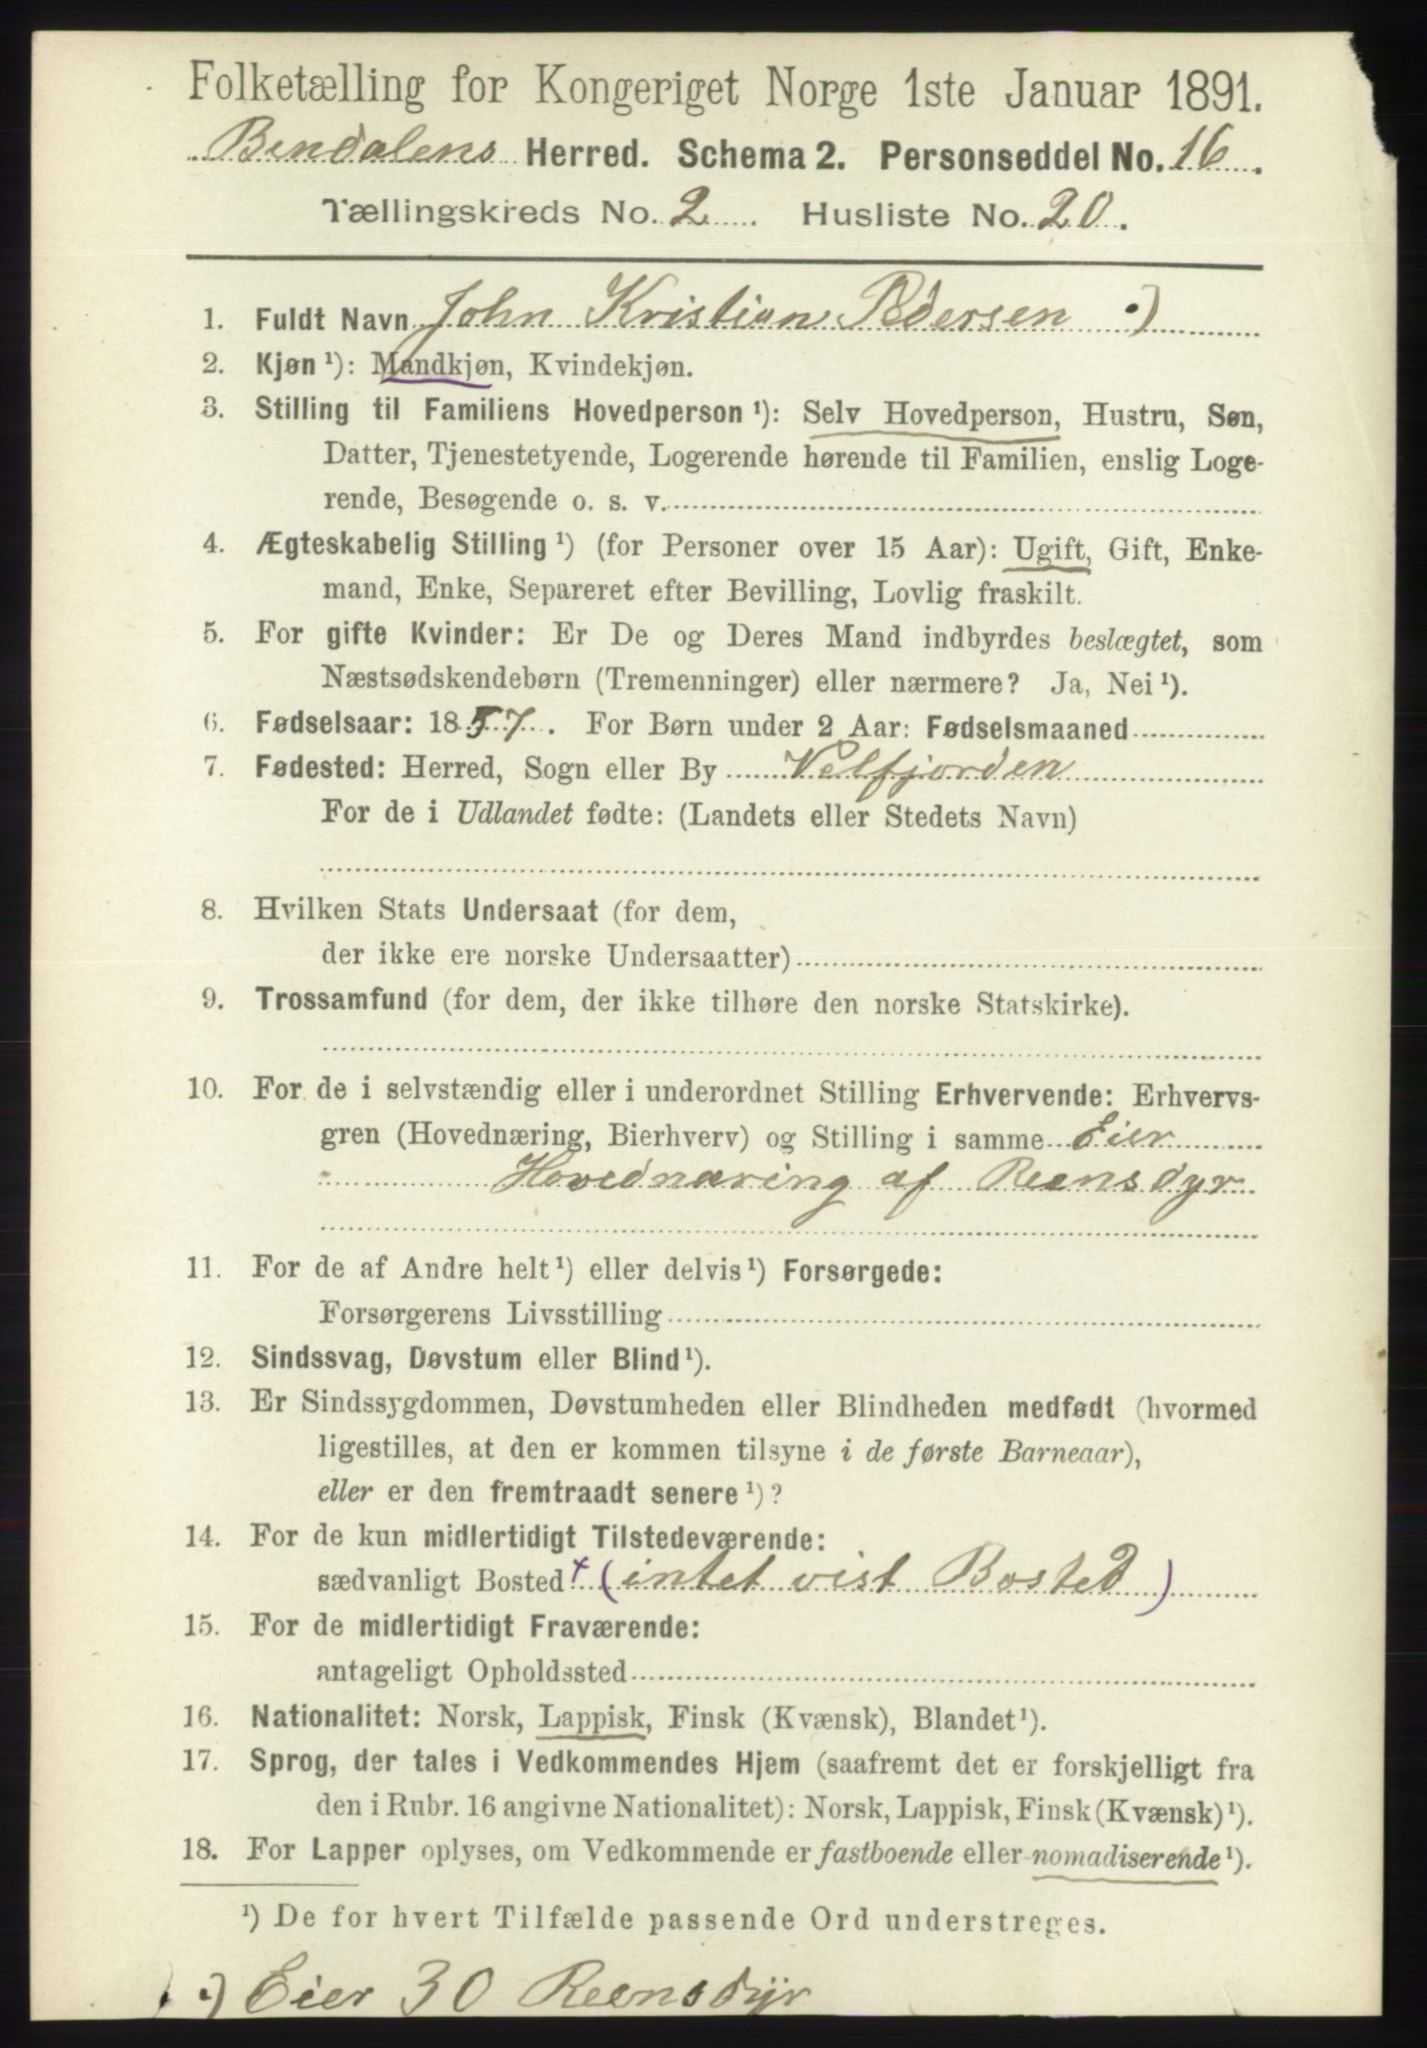 Folketælling for Kongeriget Norge 1ste Januar 1891.
Bindalens Herred. Schema 2. Personseddel No. 16.
Tællingskreds No. 2. Husliste No. 20.
1. Fuldt Navn John Kristian Pedersen ·)
2. Kjøn ¹): Mandkjøn, Kvindekjøn.
3. Stilling til Familiens Hovedperson ¹): Selv Hovedperson, Hustru, Søn,
Datter, Tjenestetyende, Logerende hørende til Familien, enslig Loge-
rende, Besøgende o. s. v.
4. Ægteskabelig Stilling ¹) (for Personer over 15 Aar): Ugift, Gift, Enke-
mand, Enke, Separeret efter Bevilling, Lovlig fraskilt.
5. For gifte Kvinder: Er De og Deres Mand indbyrdes beslægtet, som
Næstsødskendebørn (Tremenninger) eller nærmere? Ja, Nei ¹).
6. Fødselsaar: 1857. For Børn under 2 Aar: Fødselsmaaned
7. Fødested: Herred, Sogn eller By Velfjorden
For de i Udlandet fødte: (Landets eller Stedets Navn)
8. Hvilken Stats Undersaat (for dem,
der ikke ere norske Undersaatter)
9. Trossamfund (for dem, der ikke tilhøre den norske Statskirke).
10. For de i selvstændig eller i underordnet Stilling Erhvervende: Erhvervs-
gren (Hovednæring, Bierhverv) og Stilling i samme Eier
Hovednæring af Reensdyr
11. For de af Andre helt ¹) eller delvis ¹) Forsørgede:
Forsørgerens Livsstilling
12. Sindssvag, Døvstum eller Blind ¹).
13. Er Sindssygdommen, Døvstumheden eller Blindheden medfødt (hvormed
ligestilles, at den er kommen tilsyne i de første Barneaar),
eller er den fremtraadt senere ¹)?
14. For de kun midlertidigt Tilstedeværende:
sædvanligt Bosted + (intet vist Bosted)
15. For de midlertidigt Fraværende:
antageligt Opholdssted
16. Nationalitet: Norsk, Lappisk, Finsk (Kvænsk), Blandet ¹).
17. Sprog, der tales i Vedkommendes Hjem (saafremt det er forskjelligt fra
den i Rubr. 16 angivne Nationalitet): Norsk, Lappisk, Finsk (Kvænsk) ¹).
18. For Lapper oplyses, om Vedkommende er fastboende eller nomadiserende ¹).
¹) De for hvert Tilfælde passende Ord understreges.
·) Eier 30 Reensdyr